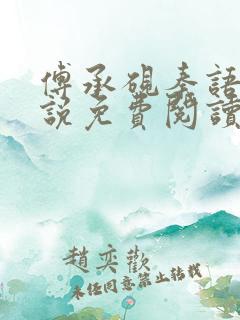 傅承硯秦語
說免費閱讀
趙奕歡
未经同意禁止转载